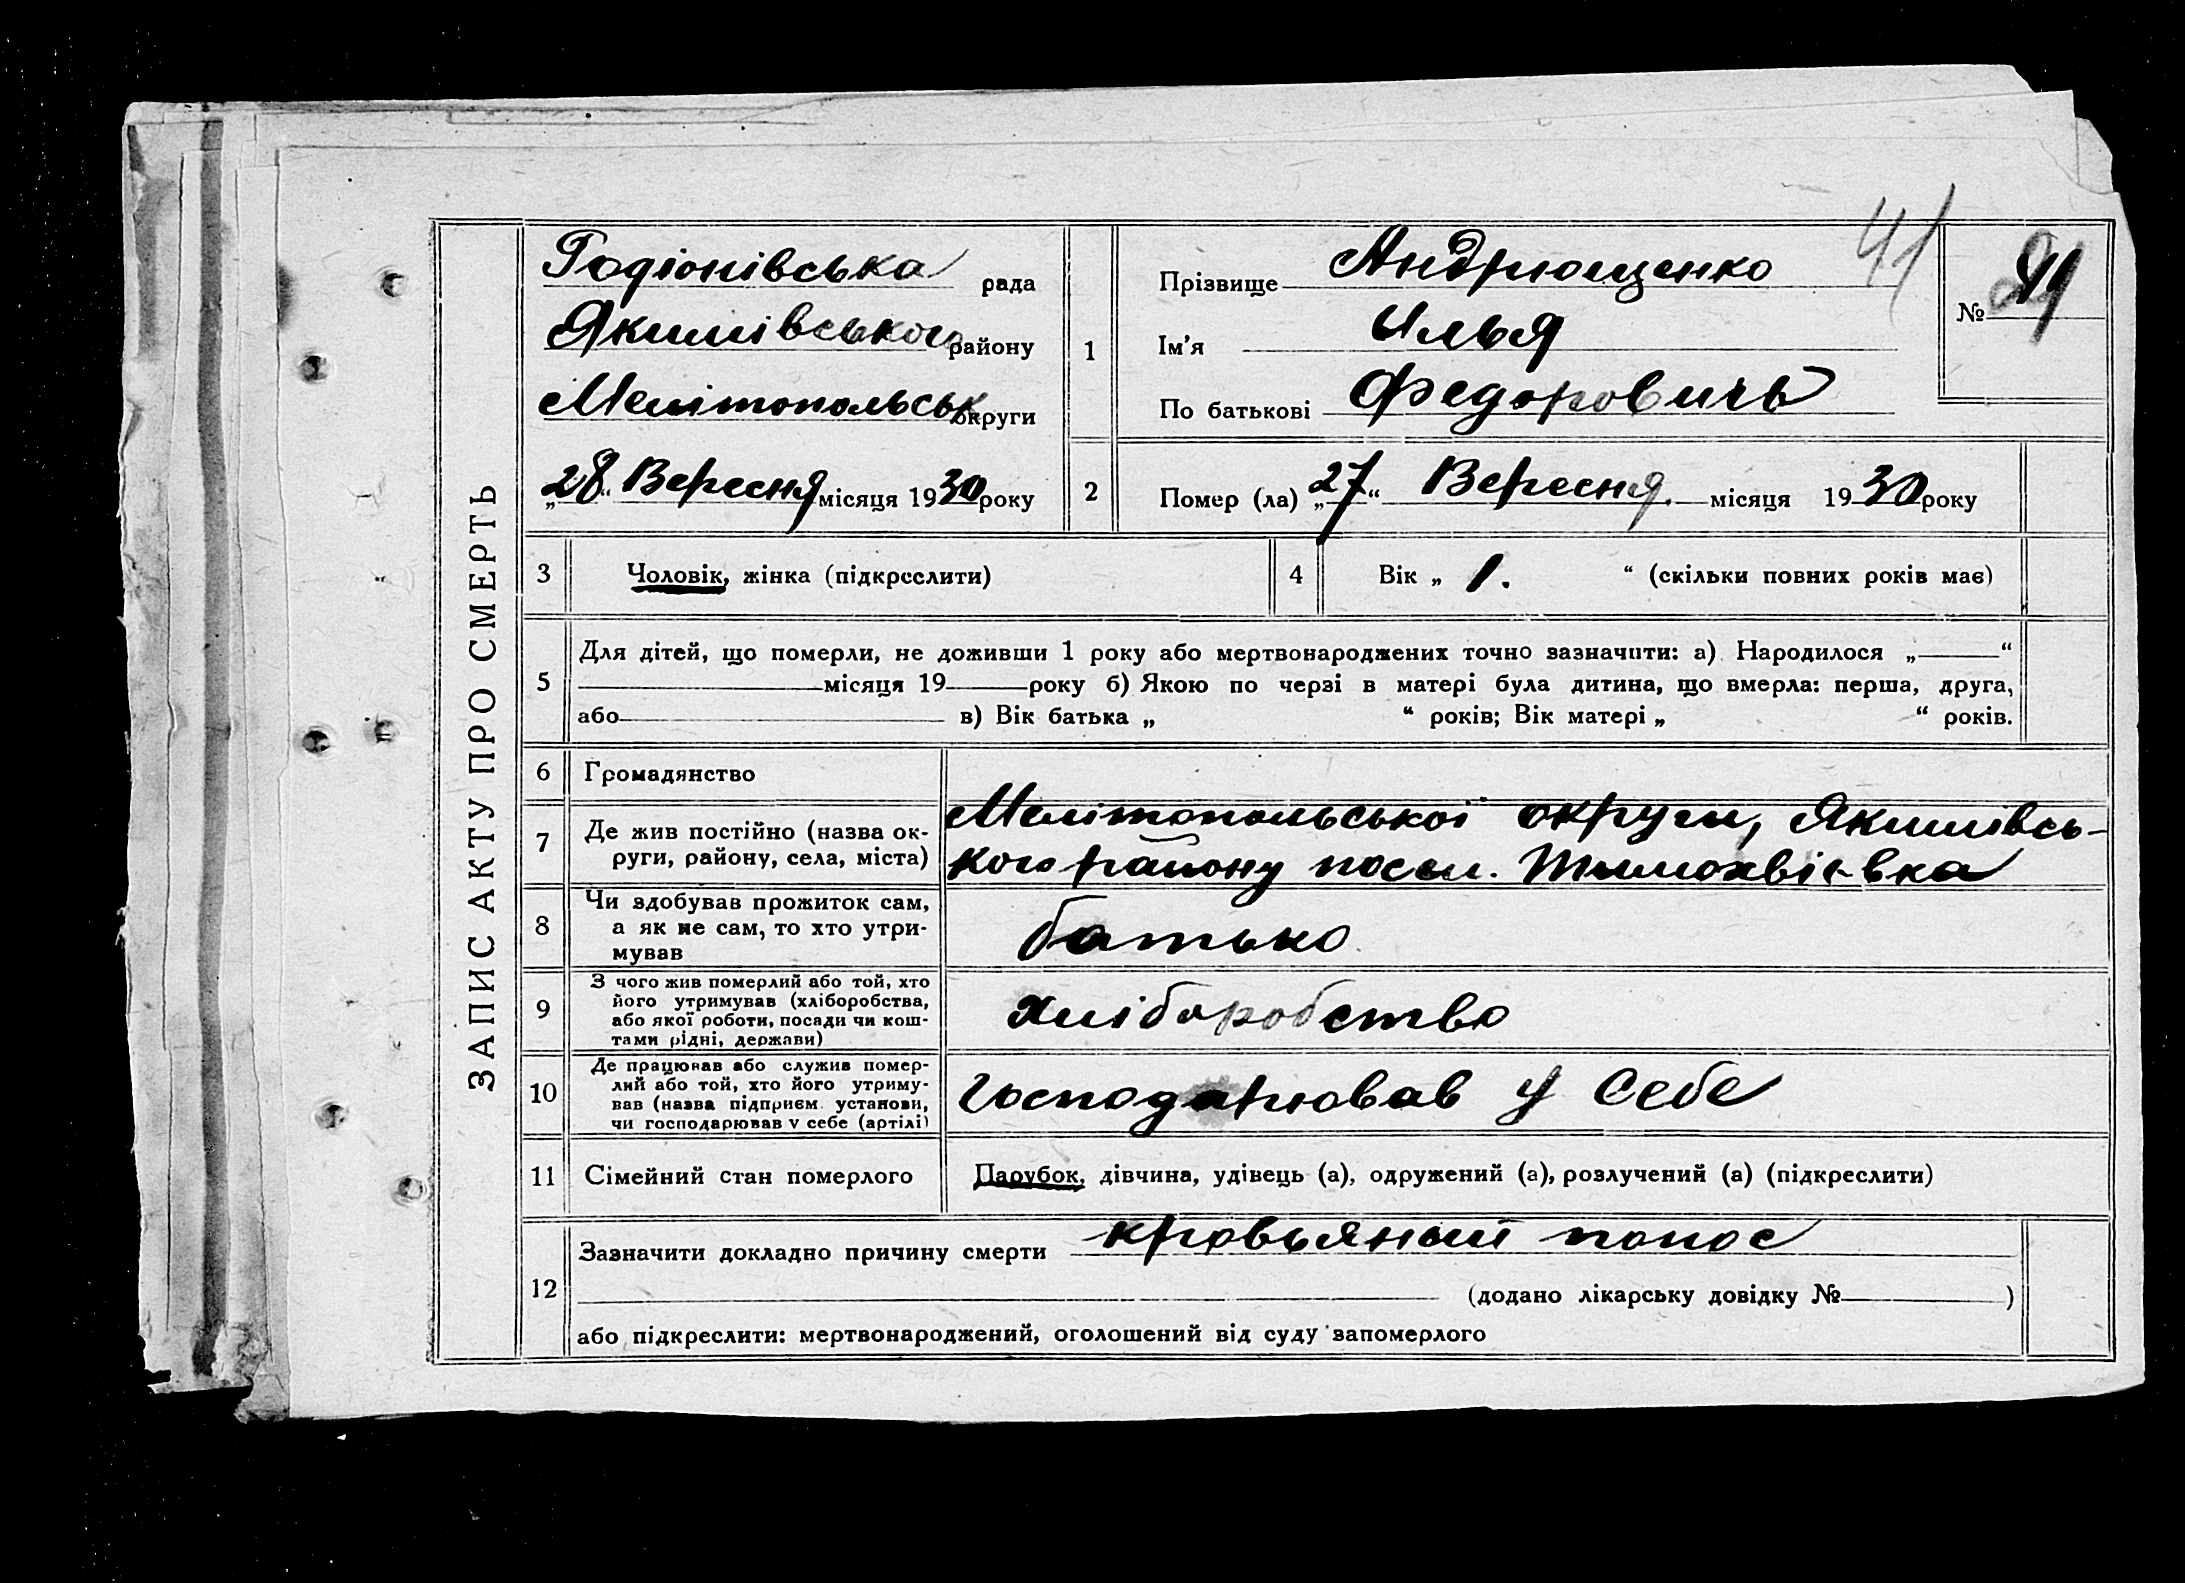 ЗАПИС АКТУ ПРО СМЕРТЬ
Родіонівська рада
Якимівського району
Мелітопольськ округи
„28“ Вересня місяця 1930 року
41
№ 41
1 Прізвище Андрющенко
Ім'я Илья
По батькові Федоровичь
2 Помер (ла) „27“ Вересня. місяця 1930 року
3 Чоловік, жінка (підкреслити)
4 Вік „ 1. “ (скільки повних років має)
5 Для дітей, що померли, не доживши 1 року або мертвонароджених точно зазначити: а) Народилося „ “
місяця 19 року б) Якою по черзі в матері була дитина, що вмерла: перша, друга,
або в) Вік батька „ “ років; Вік матері „ “ років.
6 Громадянство
7 Де жив постійно (назва ок-
руги, району, села, міста)
Мелітопольської округи, Якимівсь-
кого району посел. Тимохвієвка
8 Чи здобував прожиток сам,
а як не сам, то хто утри-
мував
батько
9 З чого жив померлий або той, хто
його утримував (хліборобства,
або якої роботи, посади чи кош-
тами рідні, держави)
хліборобство
10 Де працював або служив помер-
лий або той, хто його утриму-
вав (назва підприєм. установи,
чи господарював у себе (артілі)
Господарював у себе
11 Сімейний стан померлого
Парубок, дівчина, удівець (а), одружений (а), розлучений (а) (підкреслити)
12 Зазначити докладно причину смерти кровьяный понос
(додано лікарську довідку № )
або підкреслити: мертвонароджений, оголошений від суду запомерлого